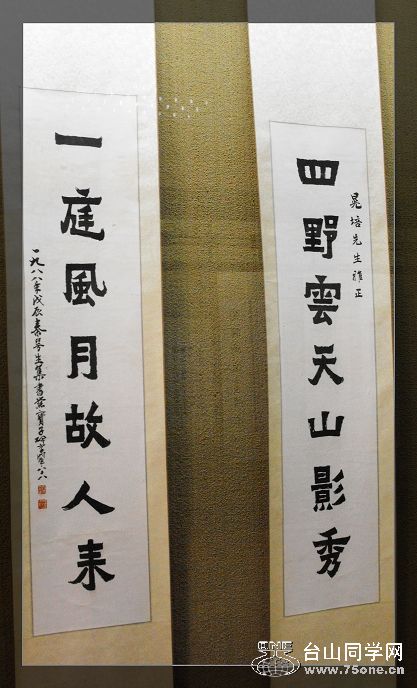 四野雲天山影秀
晃培先生雅正
一庭風月故人来
一九八八年戊辰秦咢生集書爨寶子碑
台山同学网
www.75one.cn